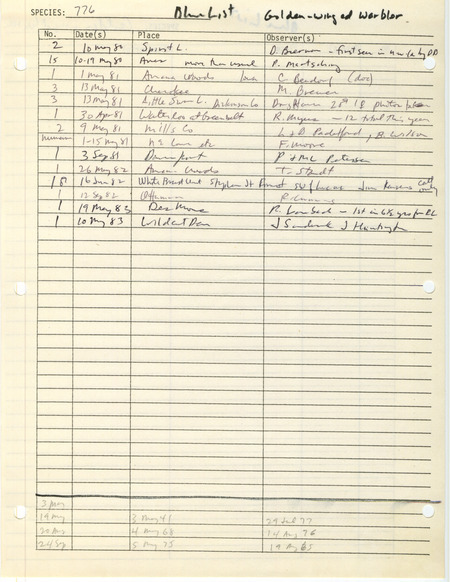 SPECIES: 776 Blue List Golden-winged Warbler
No. Date(s) Place Observer(s)
2 10 May 80 Spirit L. D. Bierman - first seen in
15 10-19 May 80 Ames more than usual P. Martsching
1 1 May 81 Amana woods C. Bendorf (doc)
3 13 May 81 Cherokee M. Brewer
3 13 May 81 Little Swan L. Dickinson Co
1 30 Apr 81 Waterloo Greenbelt R. Myers - 12 total this year
2 9 May 81 Mills Co L & B Padelford, B. Wilson
1-15 May 81 F. Moore
1 3 Sep 81 Davenport P & M L Petersen
1 26 May 82 Amana Woods T. Stadt
16 Jun 82 White Breast Unit Stephens St Forest SW/Lucas
1 12 Sep 82 Ottumwa
1 19 May 83 Des Moines - 1st in
1 10 May 83 Wildcat Den J Sandrock J Huntington
3 May
14 May 3 May 41 29 Jul 77
20 May 4 May 68 14 Aug 76
24 Sep 5 May 75 19 Aug 65